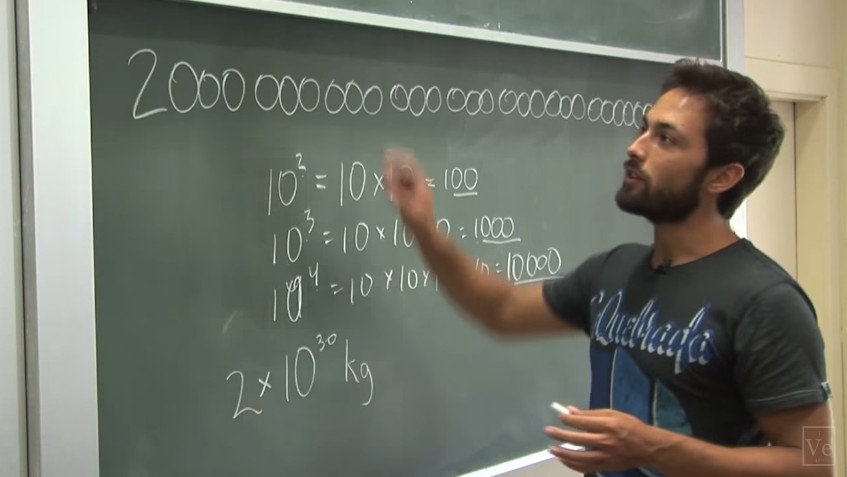 2000 000 000 000 000 000 000 0000
10² = 10 × 10 = 100
10³ = 10 × 10 0 = 1000
10⁴ = 10 × 10 × 1 10 = 10000
2 × 10³⁰ kg
Quebrada
Ve